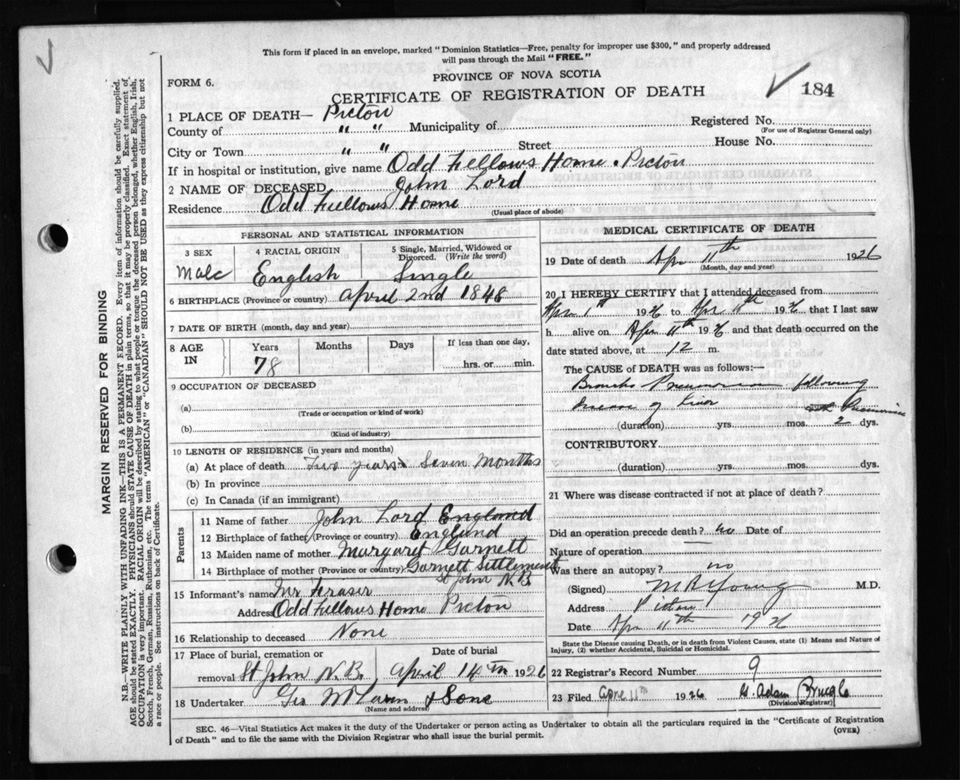 This form if placed in an envelope, marked "Dominion Statistics—Free, penalty for improper use $300," and properly addressed
will pass through the Mail "FREE."
PROVINCE OF NOVA SCOTIA
FORM 6.
CERTIFICATE OF REGISTRATION OF DEATH
184
1 PLACE OF DEATH— Pictou
Registered No.
(For use of Registrar General only)
County of " " Municipality of
City or Town " " Street House No.
If in hospital or institution, give name Odd Fellows Home. Pictou
2 NAME OF DECEASED John Lord
Residence Odd Fellows Home
(Usual place of abode)
PERSONAL AND STATISTICAL INFORMATION
3 SEX 4 RACIAL ORIGIN 5 Single, Married, Widowed or
Divorced. (Write the word)
Male English Single
6 BIRTHPLACE (Province or country) April 2nd 1848
7 DATE OF BIRTH (month, day and year)
8 AGE IN Years Months Days If less than one day,
78 hrs. or min.
9 OCCUPATION OF DECEASED
(a)
(Trade or occupation or kind of work)
(b)
(Kind of industry)
10 LENGTH OF RESIDENCE (in years and months)
(a) At place of death years Seven Months
(b) In province
(c) In Canada (if an immigrant)
Parents
11 Name of father John Lord England
12 Birthplace of father (Province or country) England
13 Maiden name of mother Margaret Garnett
14 Birthplace of mother (Province or country) Garnett Settlement
St John N.B.
15 Informant's name Mr Fraser
Address Odd Fellows Home Pictou
16 Relationship to deceased None
17 Place of burial, cremation or Date of burial
removal St John N.B. April 14th 1926
18 Undertaker Sons
(Name and address)
MEDICAL CERTIFICATE OF DEATH
19 Date of death Apr 11th 1926
(Month, day and year)
20 I HEREBY CERTIFY that I attended deceased from
Apr 1st 1926 to Apr 11th 1926 that I last saw
h alive on Apr 11th 1926 and that death occurred on the
date stated above, at 12 m.
The CAUSE of DEATH was as follows:—
Broncho Pneumonia following
disease of
(duration) yrs. mos. 2 dys.
CONTRIBUTORY
(duration) yrs. mos. dys.
21 Where was disease contracted if not at place of death?
Did an operation precede death? no Date of
Nature of operation
Was there an autopsy? no
(Signed) M R Young M.D.
Address Pictou
Date Apr 11th 1926
State the Disease causing Death, or in death from Violent Causes, state (1) Means and Nature of
Injury, (2) whether Accidental, Suicidal or Homicidal.
22 Registrar's Record Number 9
23 Filed April 11th 1926 Adam
(Division Registrar)
SEC. 46—Vital Statistics Act makes it the duty of the Undertaker or person acting as Undertaker to obtain all the particulars required in the "Certificate of Registration
of Death" and to file the same with the Division Registrar who shall issue the burial permit.
(OVER)
MARGIN RESERVED FOR BINDING
N.B.—WRITE PLAINLY WITH UNFADING INK—THIS IS A PERMANENT RECORD. Every item of information should be carefully supplied.
AGE should be stated EXACTLY. PHYSICIANS should STATE CAUSE OF DEATH in plain terms, so that it may be properly classified. Exact statement of
OCCUPATION is very important. RACIAL ORIGIN will be described by stating to what people or tongue the deceased person belonged, whether English, Irish,
Scotch, French, German, Russian, Ruthenian, etc. The terms "AMERICAN" or "CANADIAN" SHOULD NOT BE USED as they express citizenship but not
a race or people. See instructions on back of Certificate.